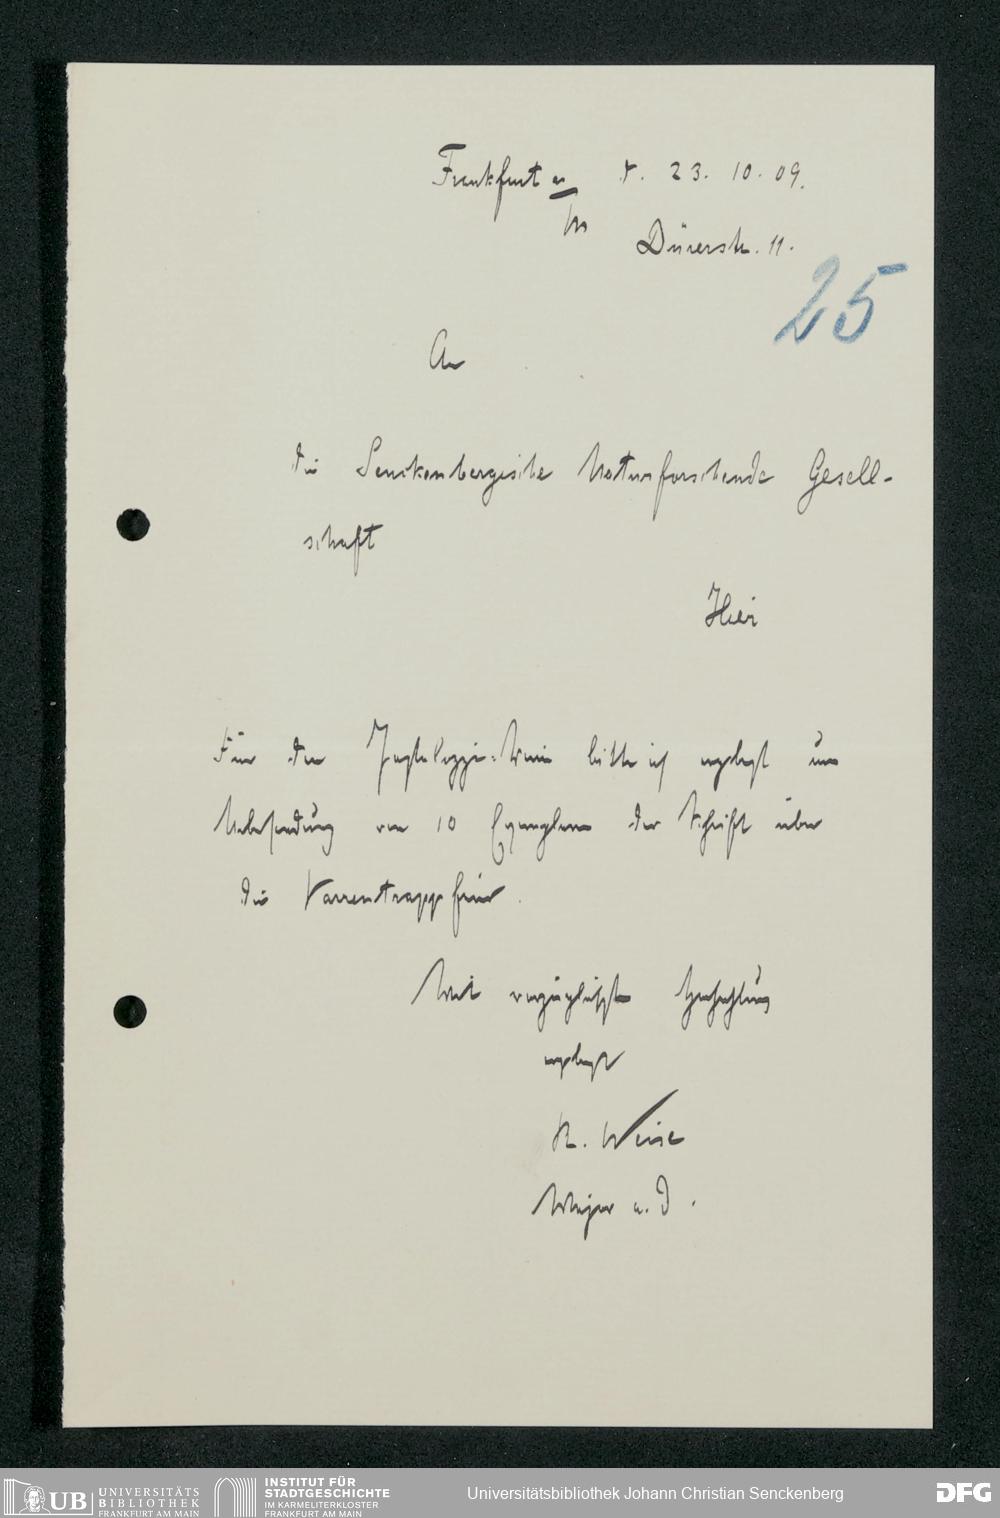 Frankfurt a/M d. 23. 10. 09.
Dürerstr. 11.
25
An
die Senckenbergische Naturforschende Gesell-
schaft
Hier
Für den Pestalozzi-Verein bitte ich ergebenst um
Uebersendung von 10 Exemplaren der Schrift über
die Varrentrappfeier.
Mit vorzüglichster Hochachtung
ergebenst
H. Weise
Major a. D.
UB UNIVERSITÄTS
BIBLIOTHEK
FRANKFURT AM MAIN
INSTITUT FÜR
STADTGESCHICHTE
IM KARMELITERKLOSTER
FRANKFURT AM MAIN
Universitätsbibliothek Johann Christian Senckenberg
DFG